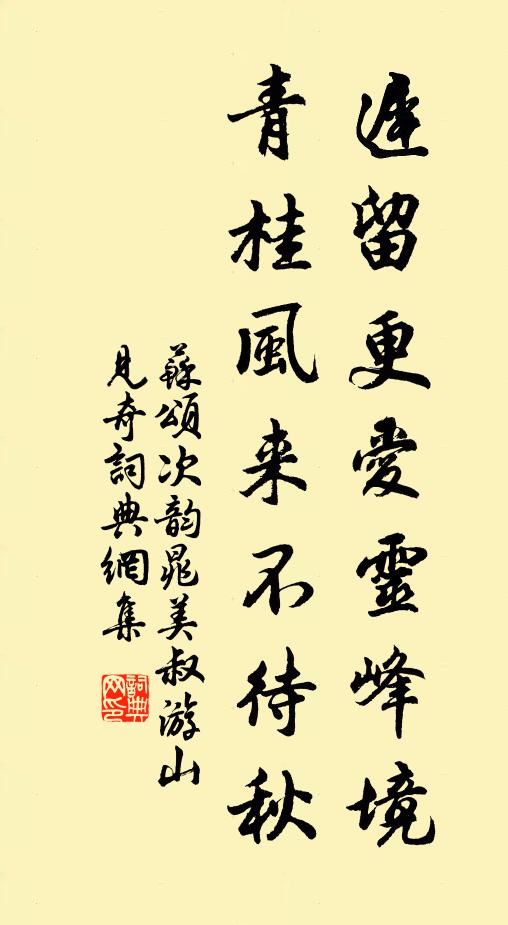 遲留更愛靈峰境
青桂風来不待秋
蘇頌次韵晁美叔游山
見奇詞典網集
詞典
网印